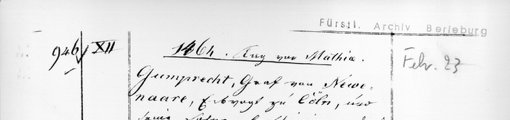 Fürstl. Archiv Berleburg
946/ XII
1464. Aug vor Mathia.
Febr. 23
Gumprecht, Graf von Newe-
naare, Erbvogt zu Cöln, und
seine